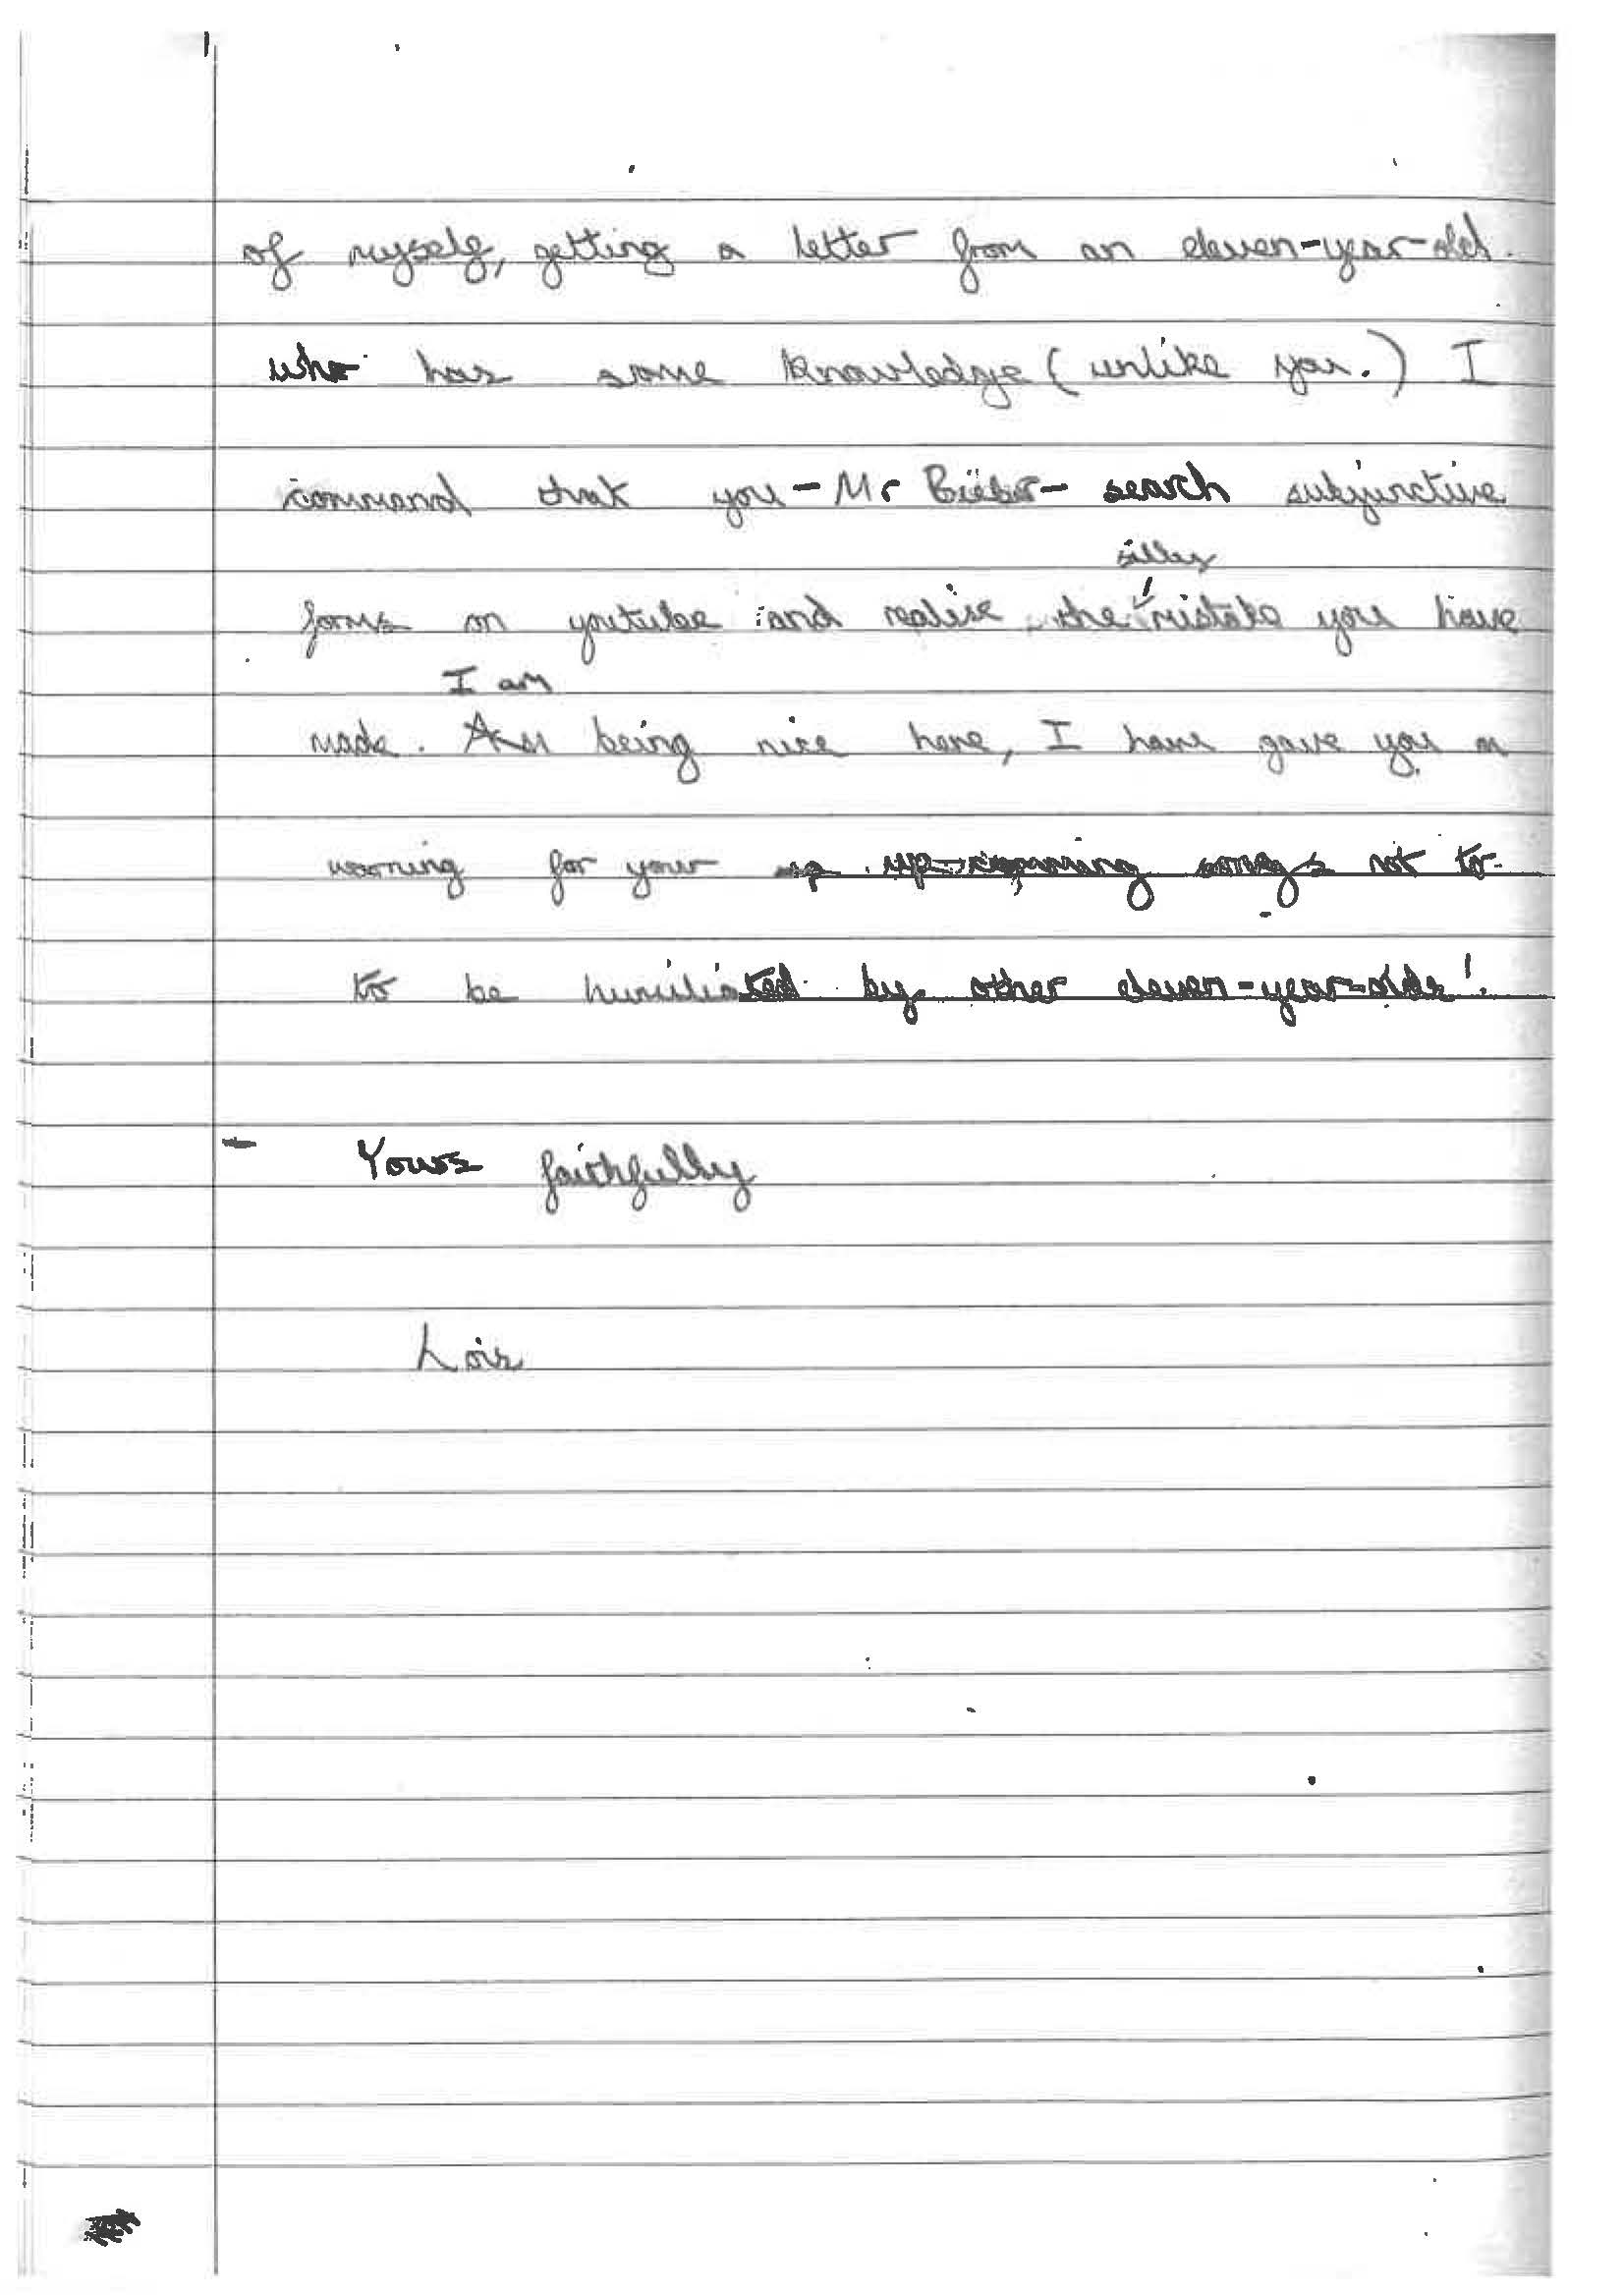 of myself, getting a letter from an eleven-year-old
who has some knowledge (unlike you.) I
command that you - Mr Bieber - search subjunctive
silly
forms on youtube and realise the mistake you have
I am
made. being nice here, I have gave you a
warning for your up-comming songs not to
to be humiliated by other eleven-year-olds!
Yours faithfully
Lois